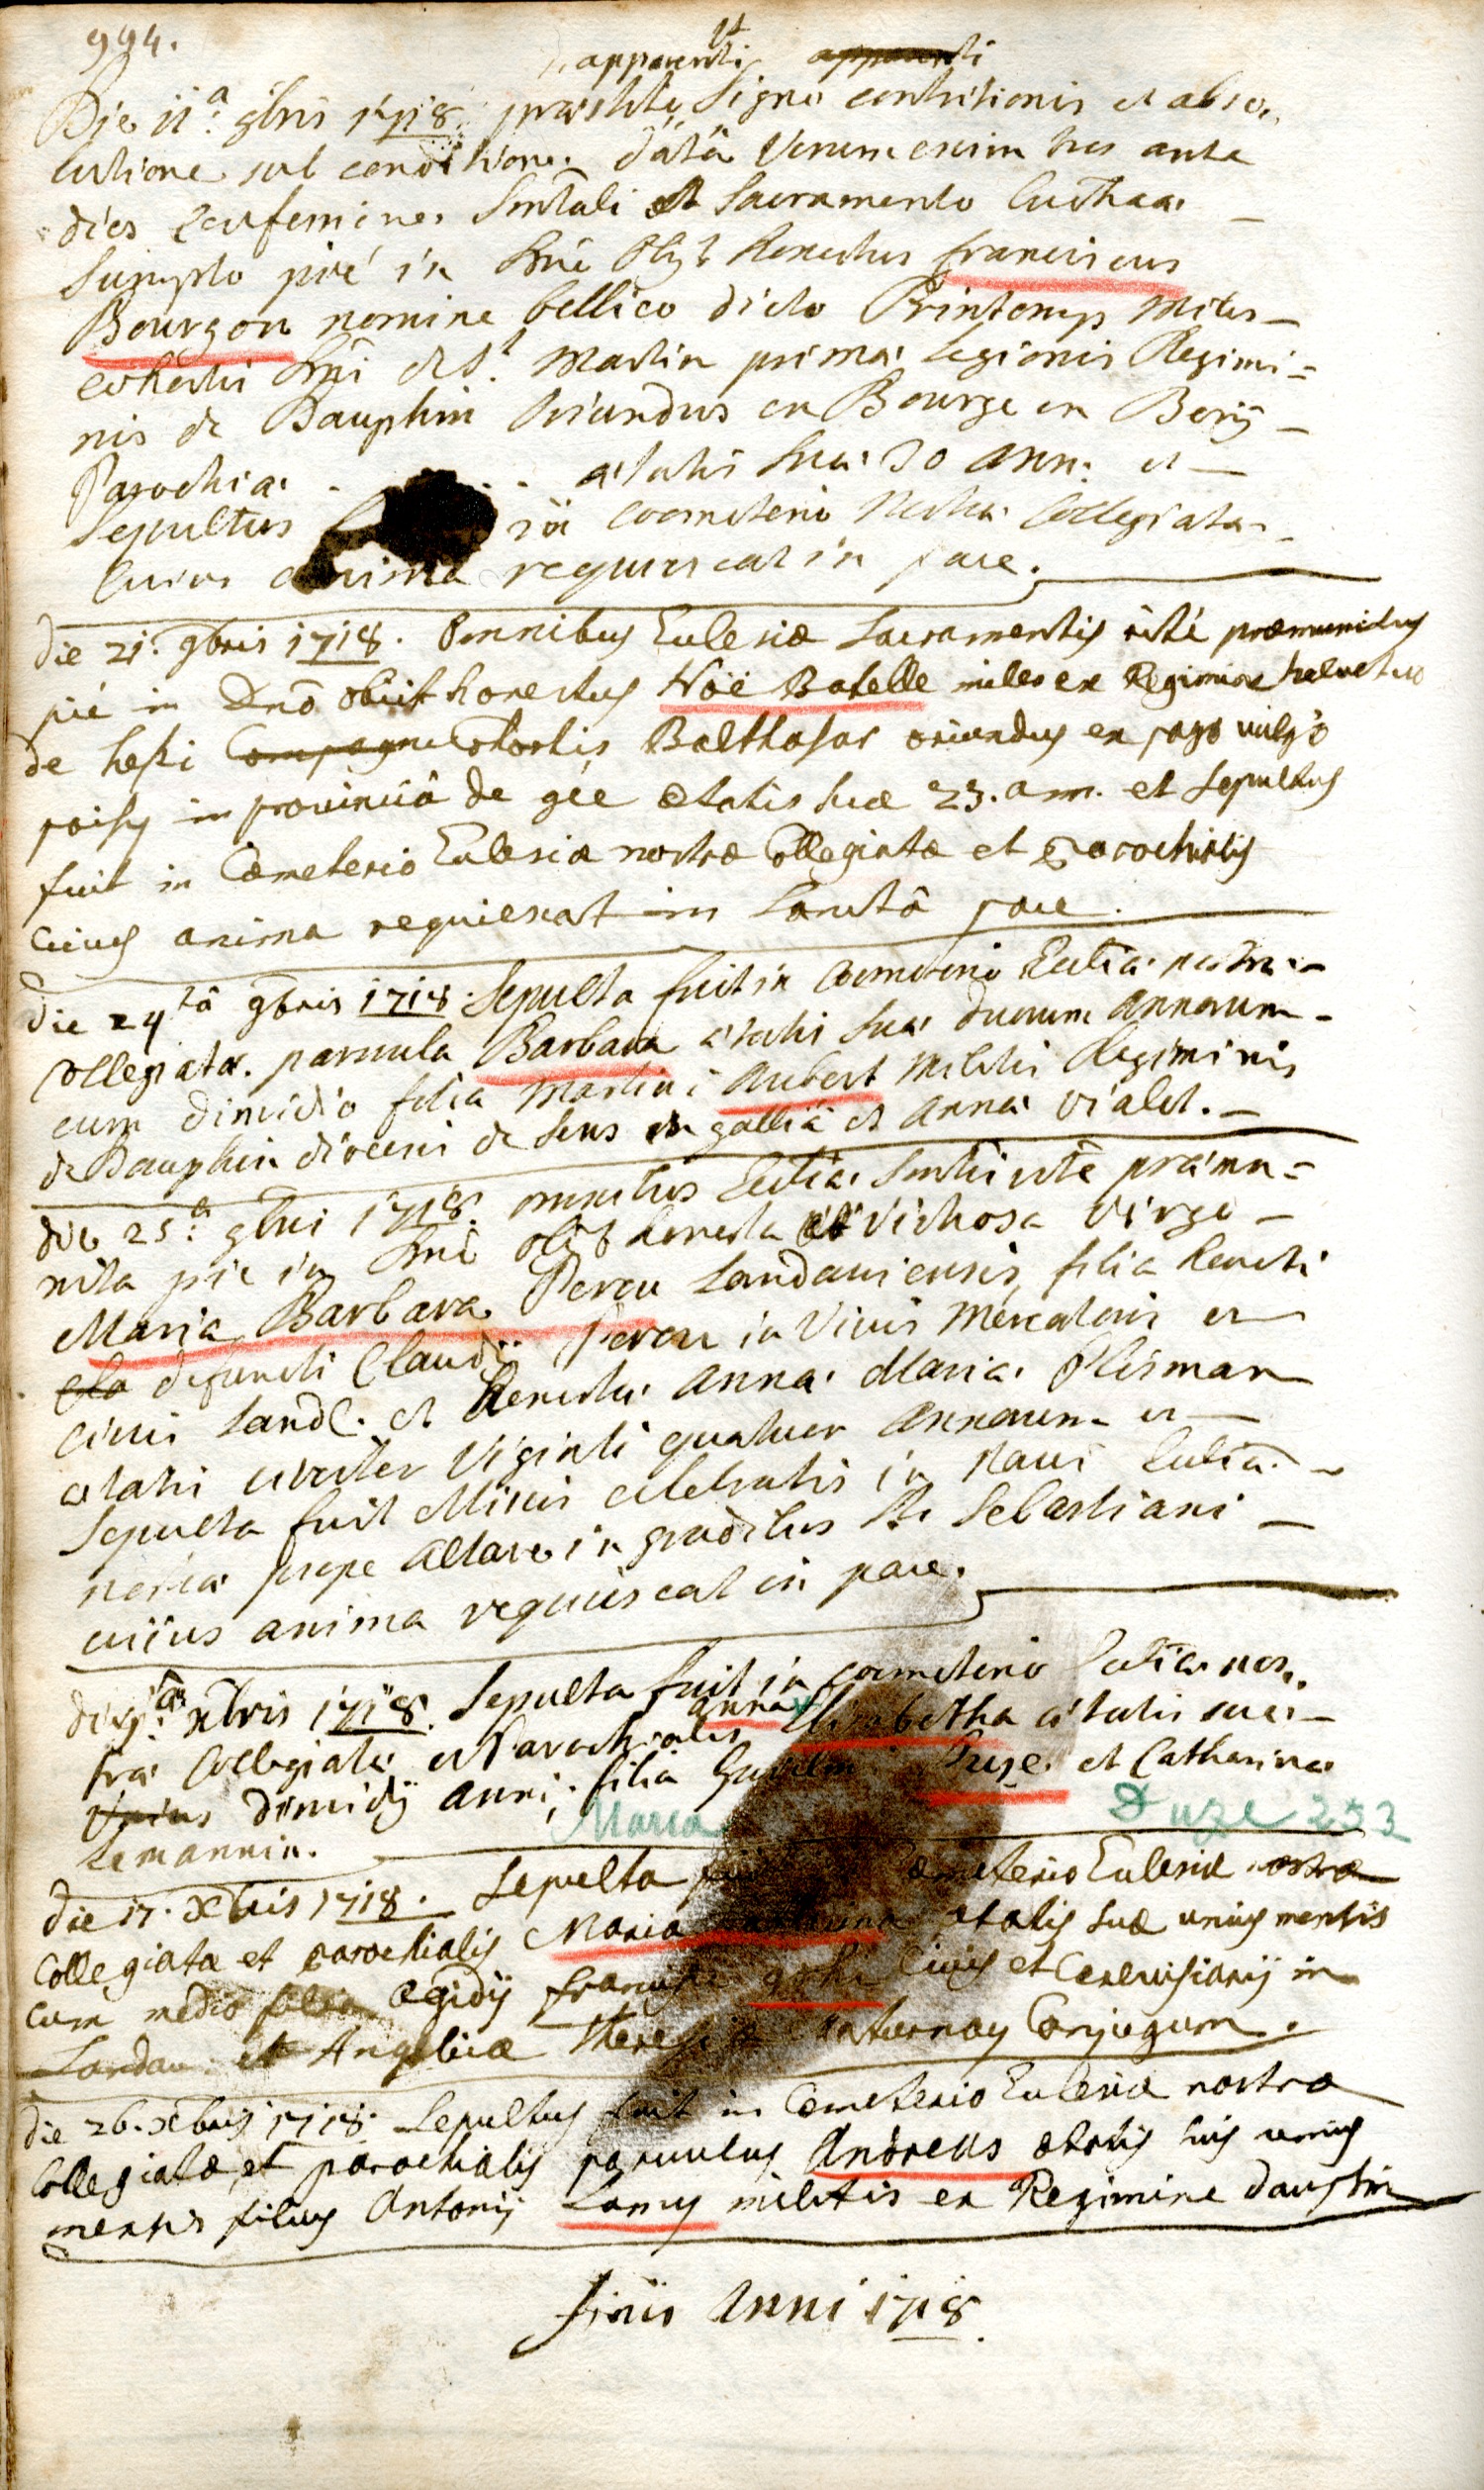 994.
apparenti apparenti
Die 11.a 9bris 1718. præstito signo contritionis et abso-
lutione sub conditione datâ Verum enim tres ante
dies confessione Smtali et Sacramento Eucharæ
Sumpto piè in Dno obijt honestus franciscus
Bourgon nomine bellico dicto Printemps Miles
cohortis Dni de St. Martin primæ legionis Regimi-
nis de Dauphin Oriundus en Bourge en Berij
Parochiæ . . . . ætatis suæ 30 ann. et
Sepultus in coemeterio Nostræ Collegiatæ
Cuius anima requiescat in pace.
Die 21. 9bris 1718. Omnibus Ecclesiæ Sacramentis rité præmunitus
pié in Dnō obiit honestus Nöë Batelle miles ex Regimine helvetico
de heßi Compagne Cohortis Balthasar oriundus ex pago vulgò
poisy in provinciâ de gée ætatis suæ 23. ann. et Sepultus
fuit in Cœmeterio Ecclesiæ nostræ Collegiatæ et Parochialis
Cuius anima requiescat in Sanctâ pace.
Die 24tâ 9bris 1718. Sepulta fuit in Coemeterio Ecclīæ nostræ
Collegiatæ. parvula Barbara ætatis suæ duorum annorum
cum dimidio filia Martini Aubert Militis Regiminis
de Dauphin diocesis de Sens in galliâ et Annæ Vialet.
die 25.a 9bris 1718. omnibus Ecclīæ Smtis rite præmu-
nita pie in Dnō obijt honesta et Vichosa Virgo
Maria Barbara Perou Landaviensis, filia honesti
defuncti Claudii Perou in Vivis Mercatoris et
civis Land. et honestæ Annæ Mariæ Plisman
ætatis circiter Viginti quatuor annorum et
Sepulta fuit Missis celebratis in Navi Ecclīæ
nostræ prope Altare in gradibus Sti Sebastiani
cuius anima requiescat in pace.
xbris 1718. Sepulta fuit in coemeterio Ecclīæ nos-
træ Collegiatæ et Parochialis Anna Elisabetha ætatis suæ
Unius dimidij anni, filia Guilelmi Duze. et Catharinæ
Maria Duze 253
Lemannin.
Die 17. Xbris 1718. Sepulta fuit cœmeterio Ecclesiæ nostræ
Collegiatæ et parochialis Maria Catharina ætatis suæ unius mensis
cum medio filia Ægidij francisci Civis et Cerevisiarij in
Landau et Angelicæ Theresiæ Conjugum.
Die 26. Xbris 1718. Sepultus fuit in Cœmeterio Ecclesiæ nostræ
Collegiatæ et parochialis parvulus Andreas ætatis suis unius
mensis filius Antonij Lamy militis ex Regimine dauphin
finis Anni 1718.